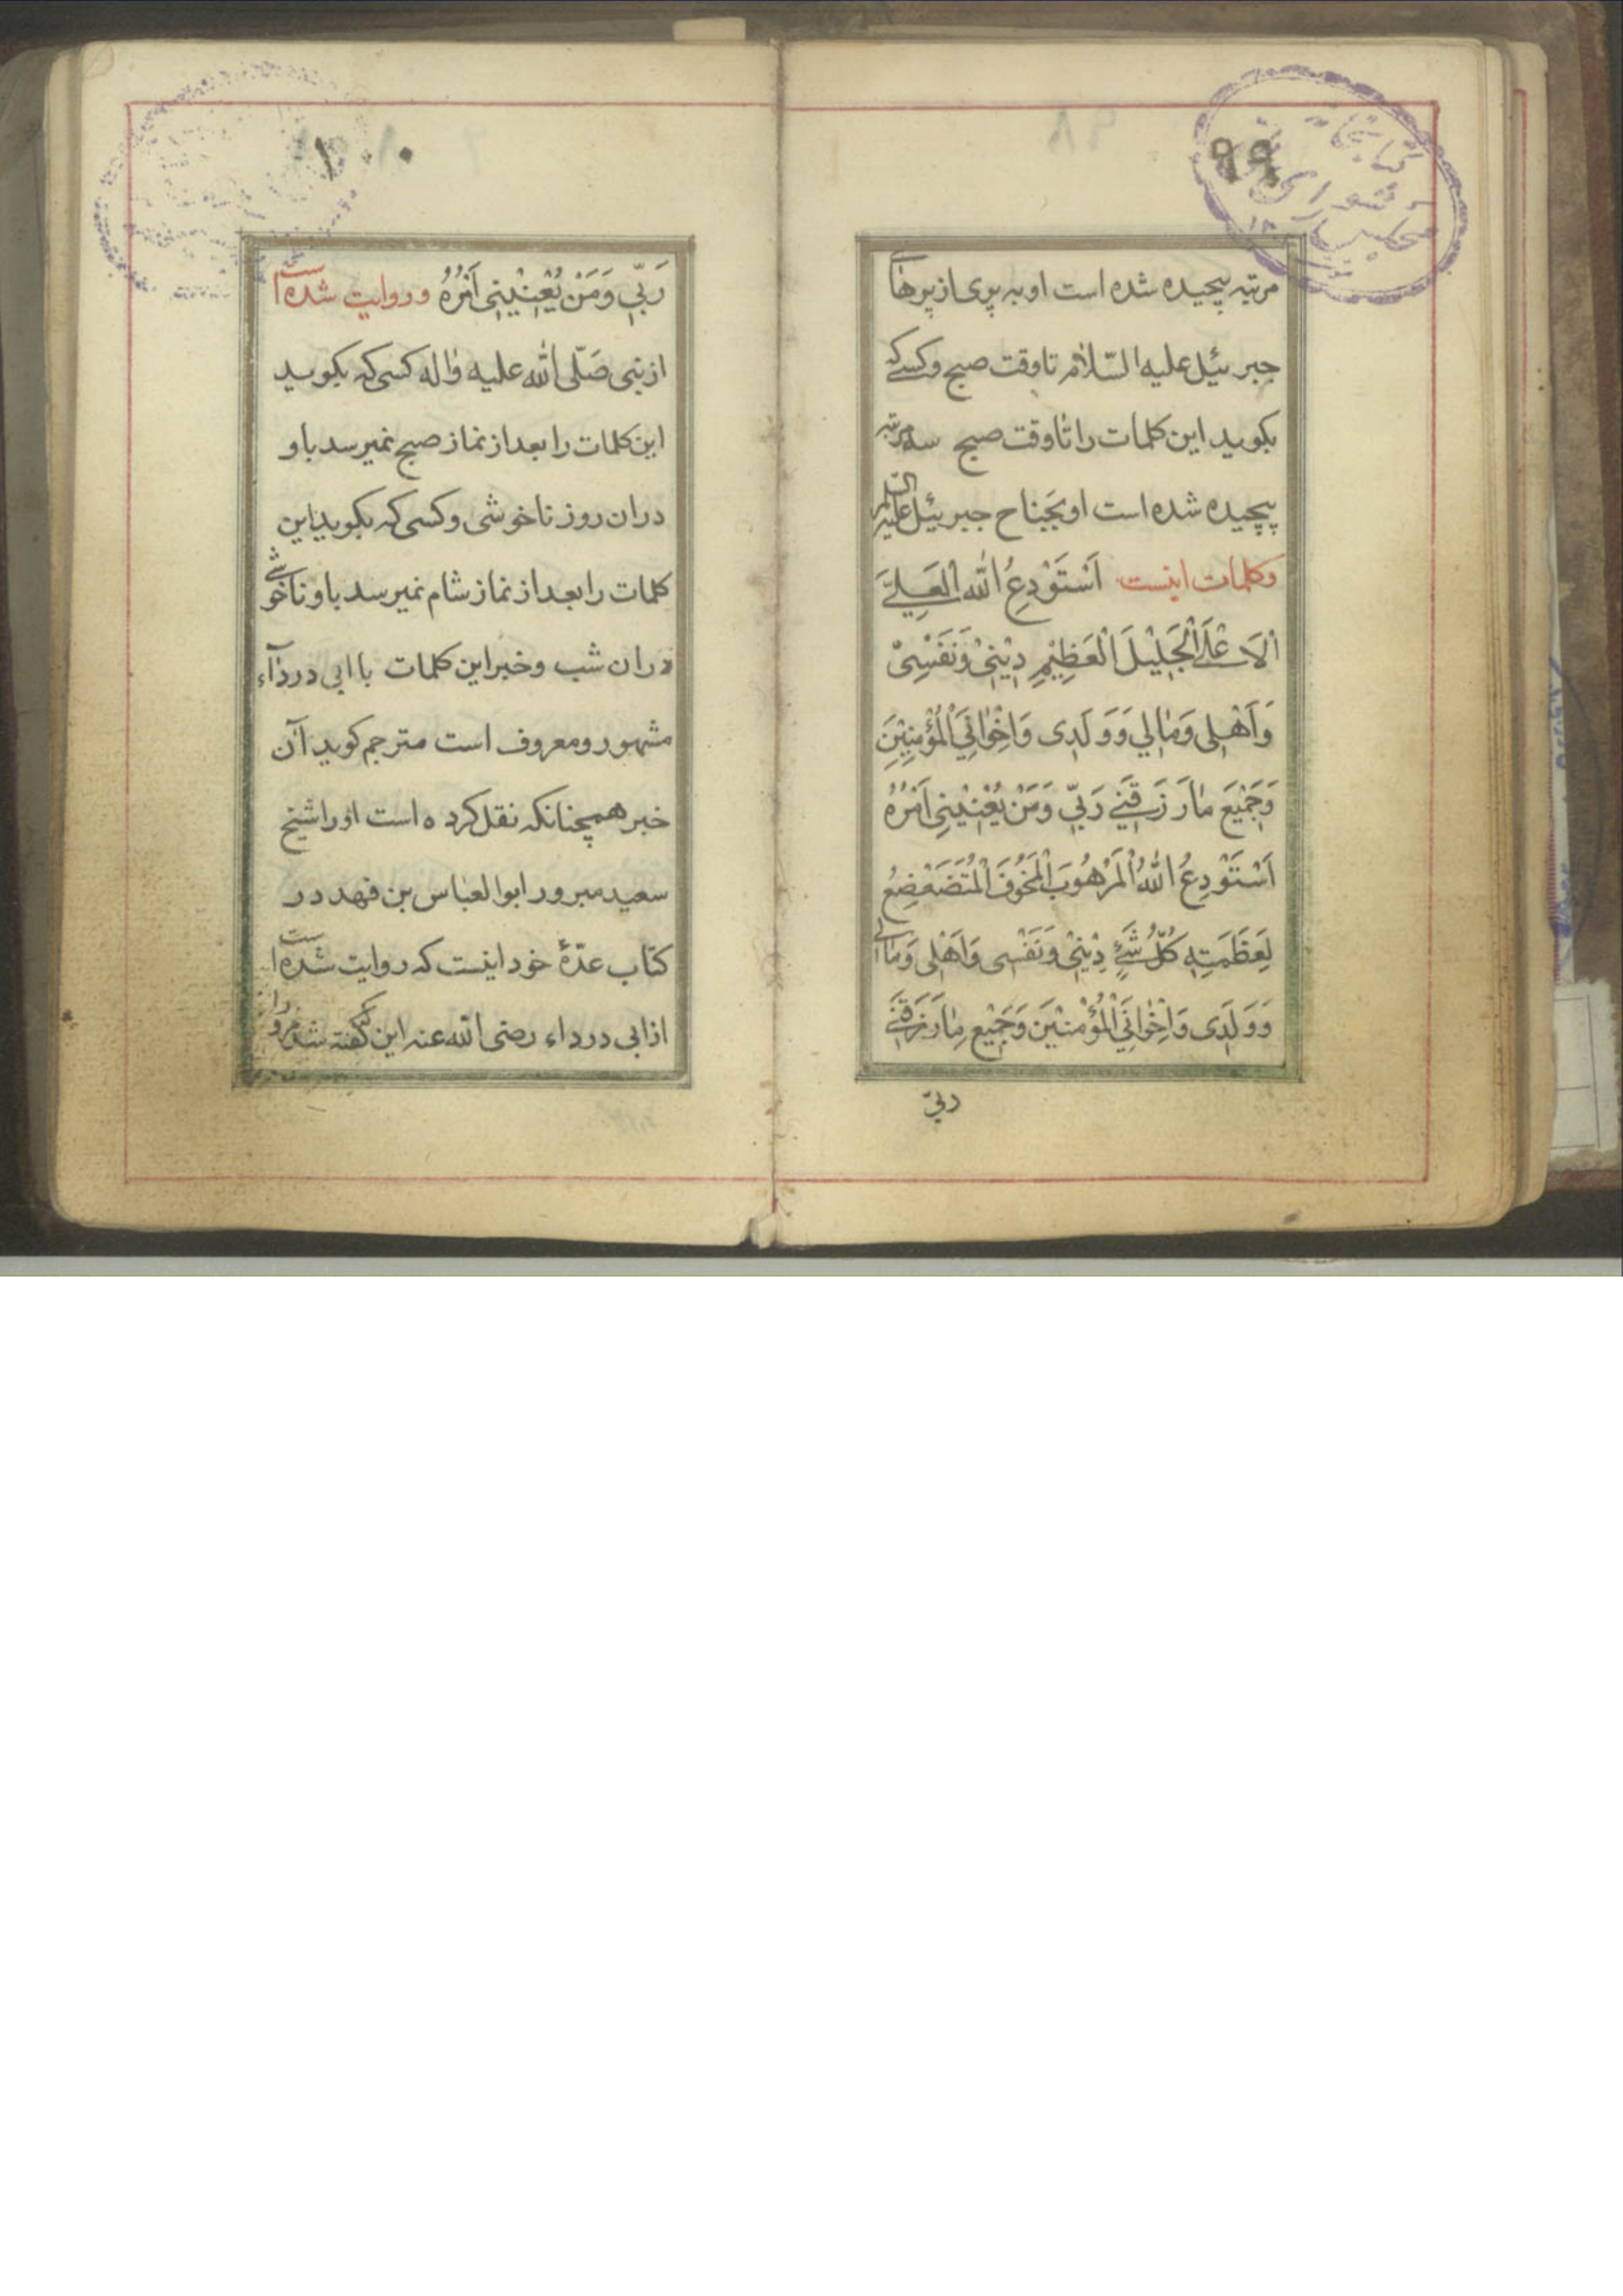 ٩٩
مرتبه پیچیده شده است او به پری از پرهای
جبرئیل علیه السّلام تا وقت صبح و کسی که
بکوید این کلمات را تا وقت صبح سه مرتبه
پیچیده شده است او بجَناح جبرئیل علیه السّلم
و کلمات اینست اَسْتَوْدِعُ اللّٰه العَلِیَّ
اْلاَعْلَی الْجَلِیْلَ الْعَظِیْمِ دِیْنِیْ وَنَفْسِیْ
وَاَهْلِی وَمٰالِي وَوَلَدِی وَاِخْوٰانِيَ الْمُؤْمِنِیْنَ
وَجَمْیِعَ مٰارَزَقَنِي رَبِّي وَمَنْ یُعْنِیْنِی اَمْرُهُ
اَسْتَوْدِعُ اللّٰهُ الْمَرْهُوبَ الْمَخُوفَ الْمُتَضَعْضِعُ
لِعَظَمَتِهِ کُلُّ شَيْءٍ دِیْنِیْ وَنَفْسِی وَاَهْلِی وَمٰالی
وَوَلَدِی وَاِخْوٰانِيَ الْمُؤْمنیْنَ وَجَمْیِع مٰارَزَقَنِي
ربّي
١٠٠
رَبِّي وَمَنْ یُعْنِیْنِی اَمْرُهُ و روایت شده است
از نبی صَلّی اللّٰه علیه وٰاله کسی که بکوید
این کلمات را بعد از نماز صبح نمیرسد باو
دران روز ناخوشی و کسی که بکوید این
کلمات را بعد از نماز شام نمیرسد باو ناخوشی
دران شب و خبر این کلمات با ابی دردآء
مشهور و معروف است مترجم کوید آن
خبر همچنانکه نقل کرده است اورا شیخ
سعید مبرور ابوالعبٰاس بن فهد در
کتاب عدّهٔ خود اینست که روایت شده است
از ابی درداء رضی اللّٰه عنه این که کفته شد مر او را